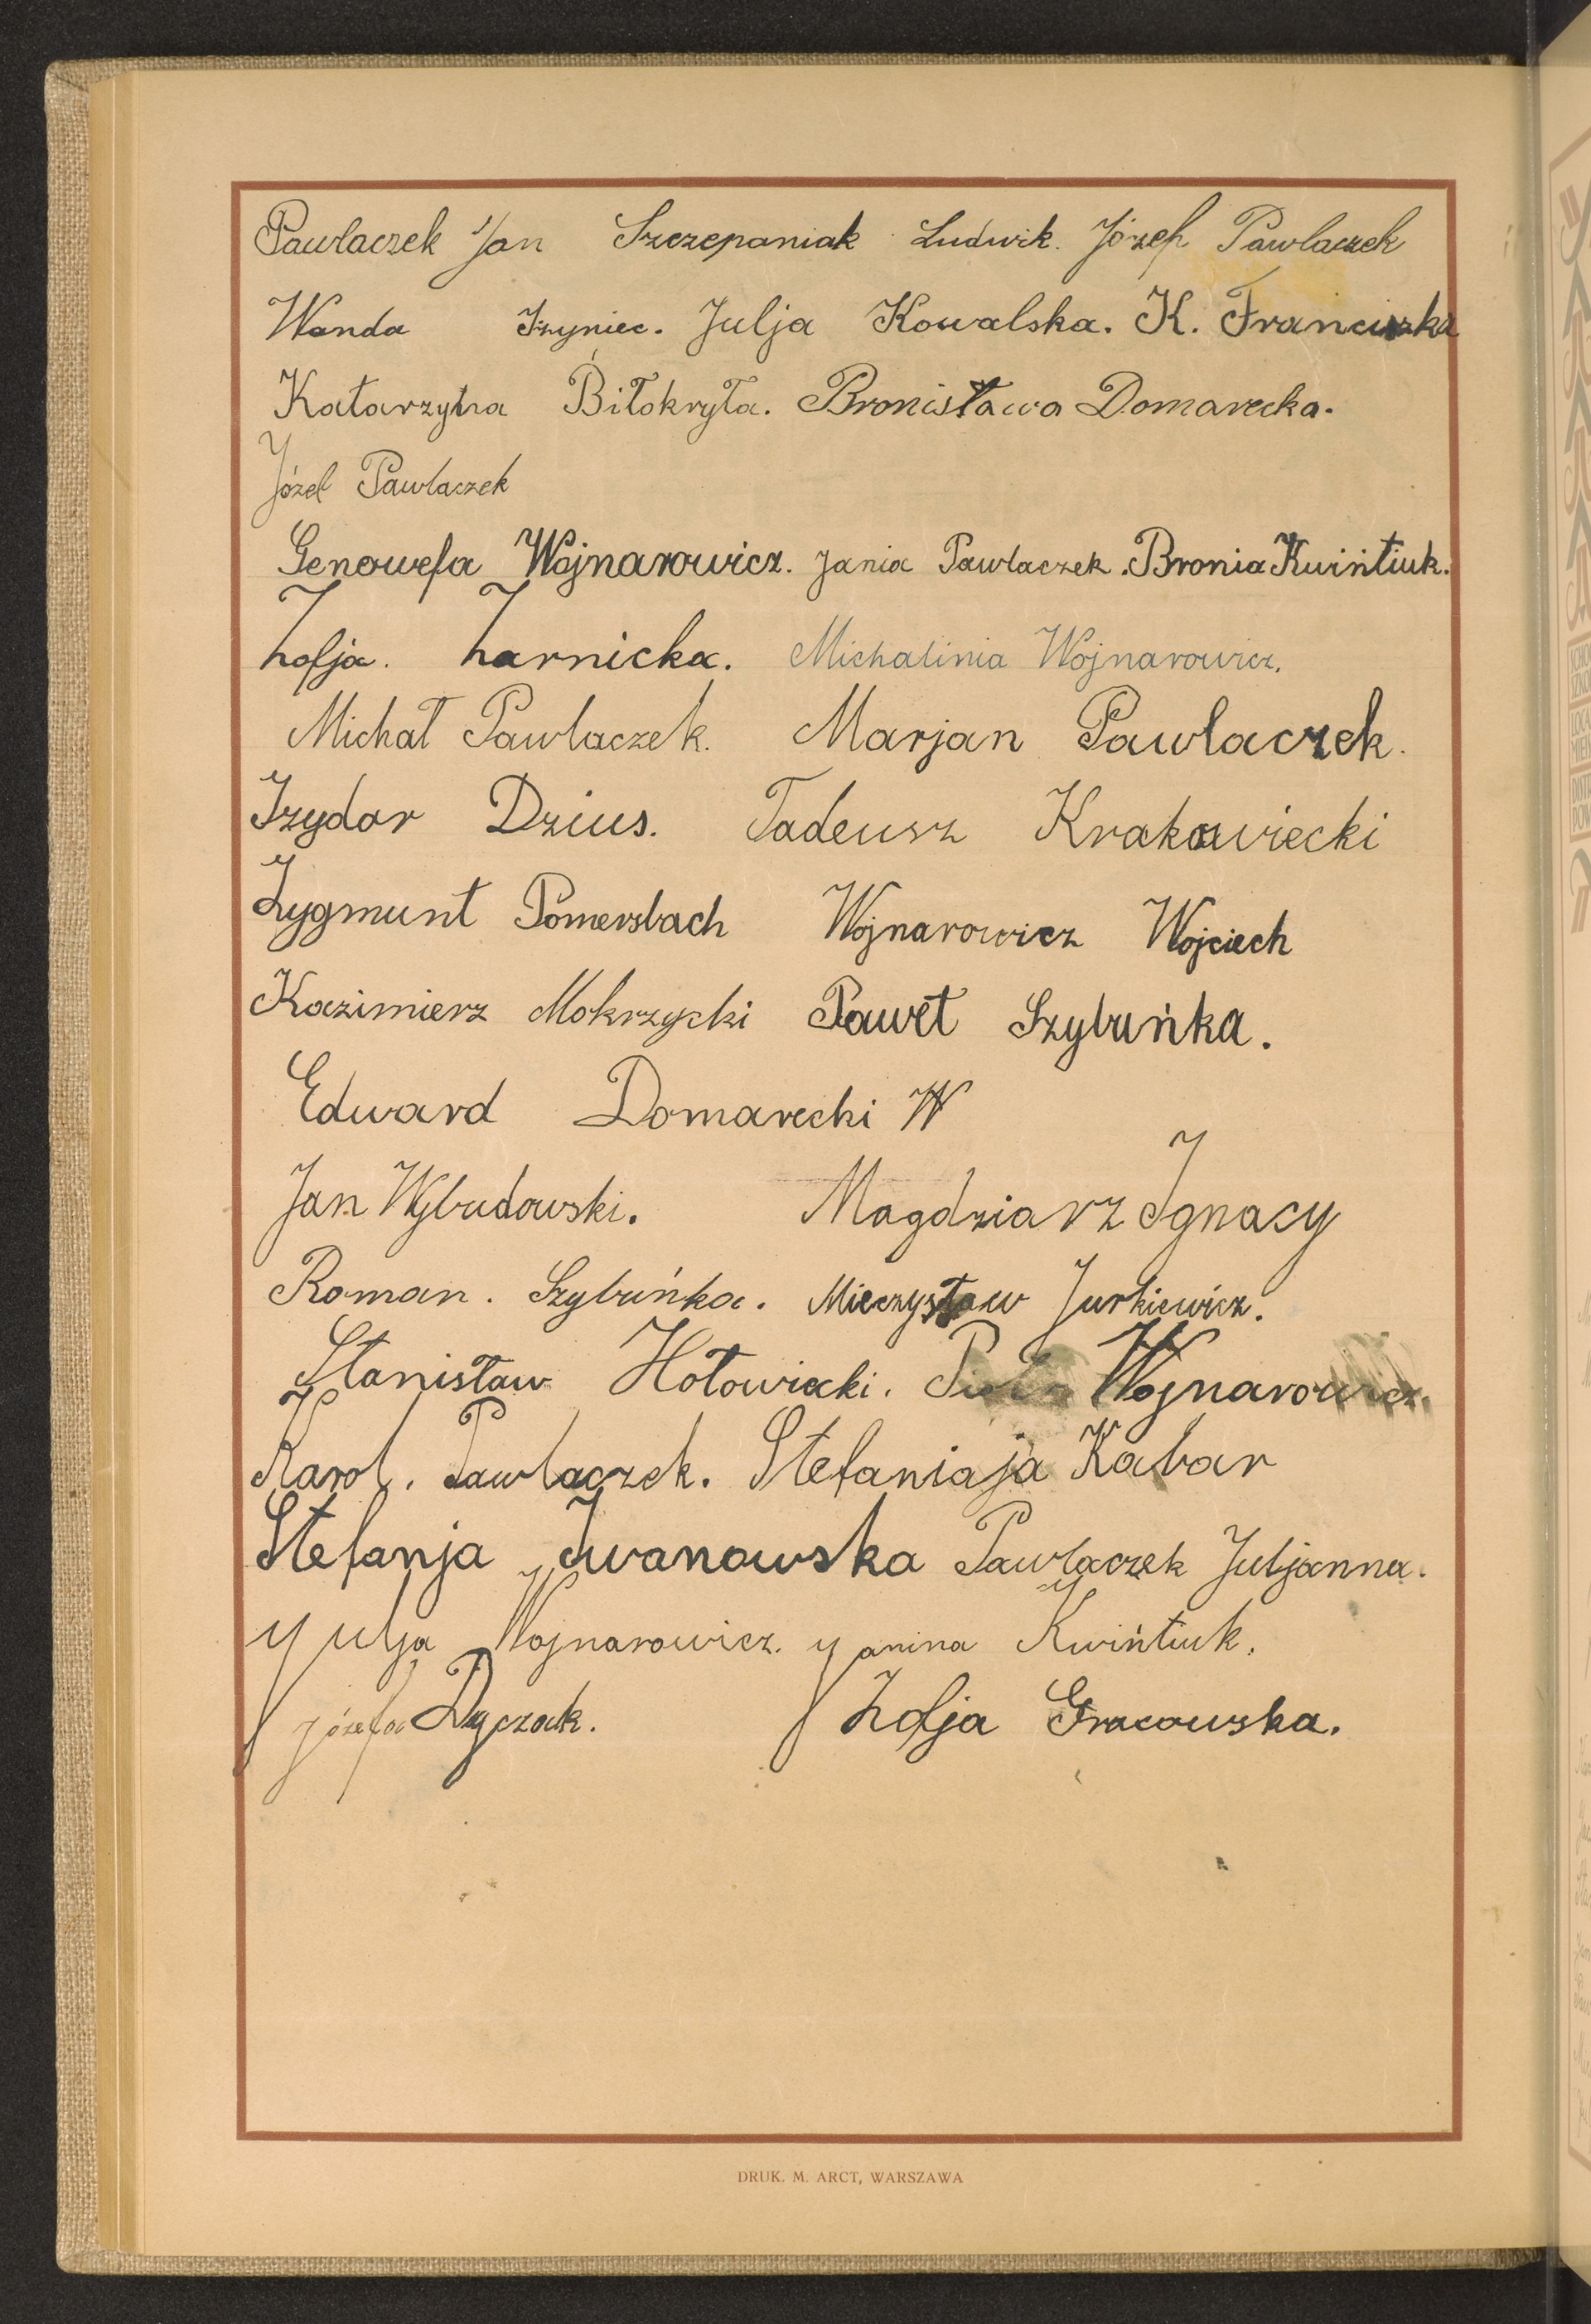 Pawlaczek Jan Szczepaniak Ludwik. Józef Pawlaczek
Wanda Iżyniec. Julja Kowalska. K. Franciszka
Katarzyna Biłokryła. Bronisława Domarecka.
Józef Pawlaczek
Genowefa Wojnarowicz. Jania Pawlaczek. Bronia Kwińtiuk.
Zofja. Żarnicka. Michalinia Wojnarowicz.
Michał Pawlaczek. Marjan Pawlaczek.
Izydor Dzius. Tadeusz Krakowiecki
Zygmunt Pomersbach Wojnarowicz Wojciech
Kazimierz Mokrzycki Paweł Szybuńka.
Edward Domarecki W
Jan Wybudowski. Magdziarz Ignacy
Roman. Szybuńka. Mieczysław Jurkiewicz.
Stanisław Hołowiecki. Piotr Wojnarowicz.
Karol. Pawlaczek. Stefaniaja Kabar
Stefanja Iwanowska Pawlaczek Juljanna.
Julja Wojnarowicz. Janina Kwińtiuk.
Józefa Dyczak. Zofja Gracowska.
DRUK. M. ARCT, WARSZAWA